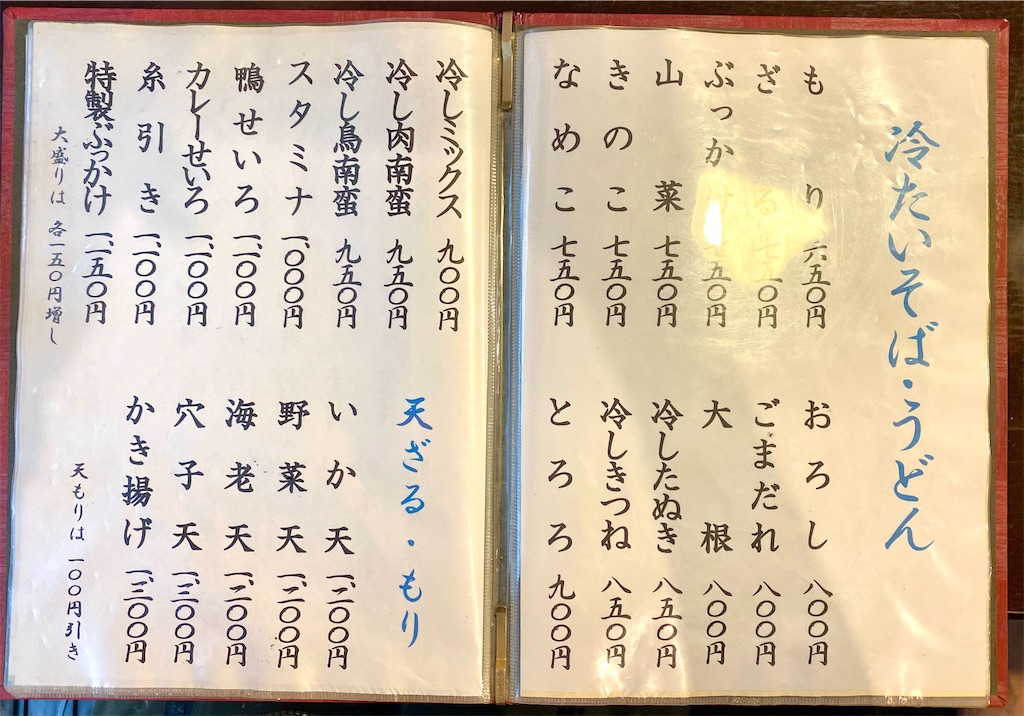 冷たいそば・うどん
もり 六五〇円
ざる 七五〇円
ぶっかけ 七五〇円
山菜 七五〇円
きのこ 七五〇円
なめこ 七五〇円
おろし 八〇〇円
ごまだれ 八〇〇円
大根 八〇〇円
冷したぬき 八五〇円
冷しきつね 八五〇円
とろろ 九〇〇円
冷しミックス 九〇〇円
冷し肉南蛮 九五〇円
冷し鳥南蛮 九五〇円
スタミナ 一、〇〇〇円
鴨せいろ 一、一〇〇円
カレーせいろ 一、一〇〇円
糸引き 一、一〇〇円
特製ぶっかけ 一、一五〇円
大盛りは 各一五〇円増し
天ざる・もり
いか天 一、二〇〇円
野菜天 一、二〇〇円
海老天 一、二〇〇円
穴子天 一、三〇〇円
かき揚げ 一、三〇〇円
天もりは 一〇〇円引き